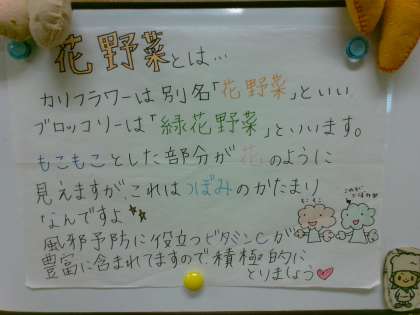 花野菜とは…
カリフラワーは別名「花野菜」といい
ブロッコリーは「緑花野菜」といいます。
もこもことした部分が花のように
見えますが、これはつぼみのかたまり
なんですよ
風邪予防に役立つビタミンCが
豊富に含まれてますので積極的に
とりましょう♡